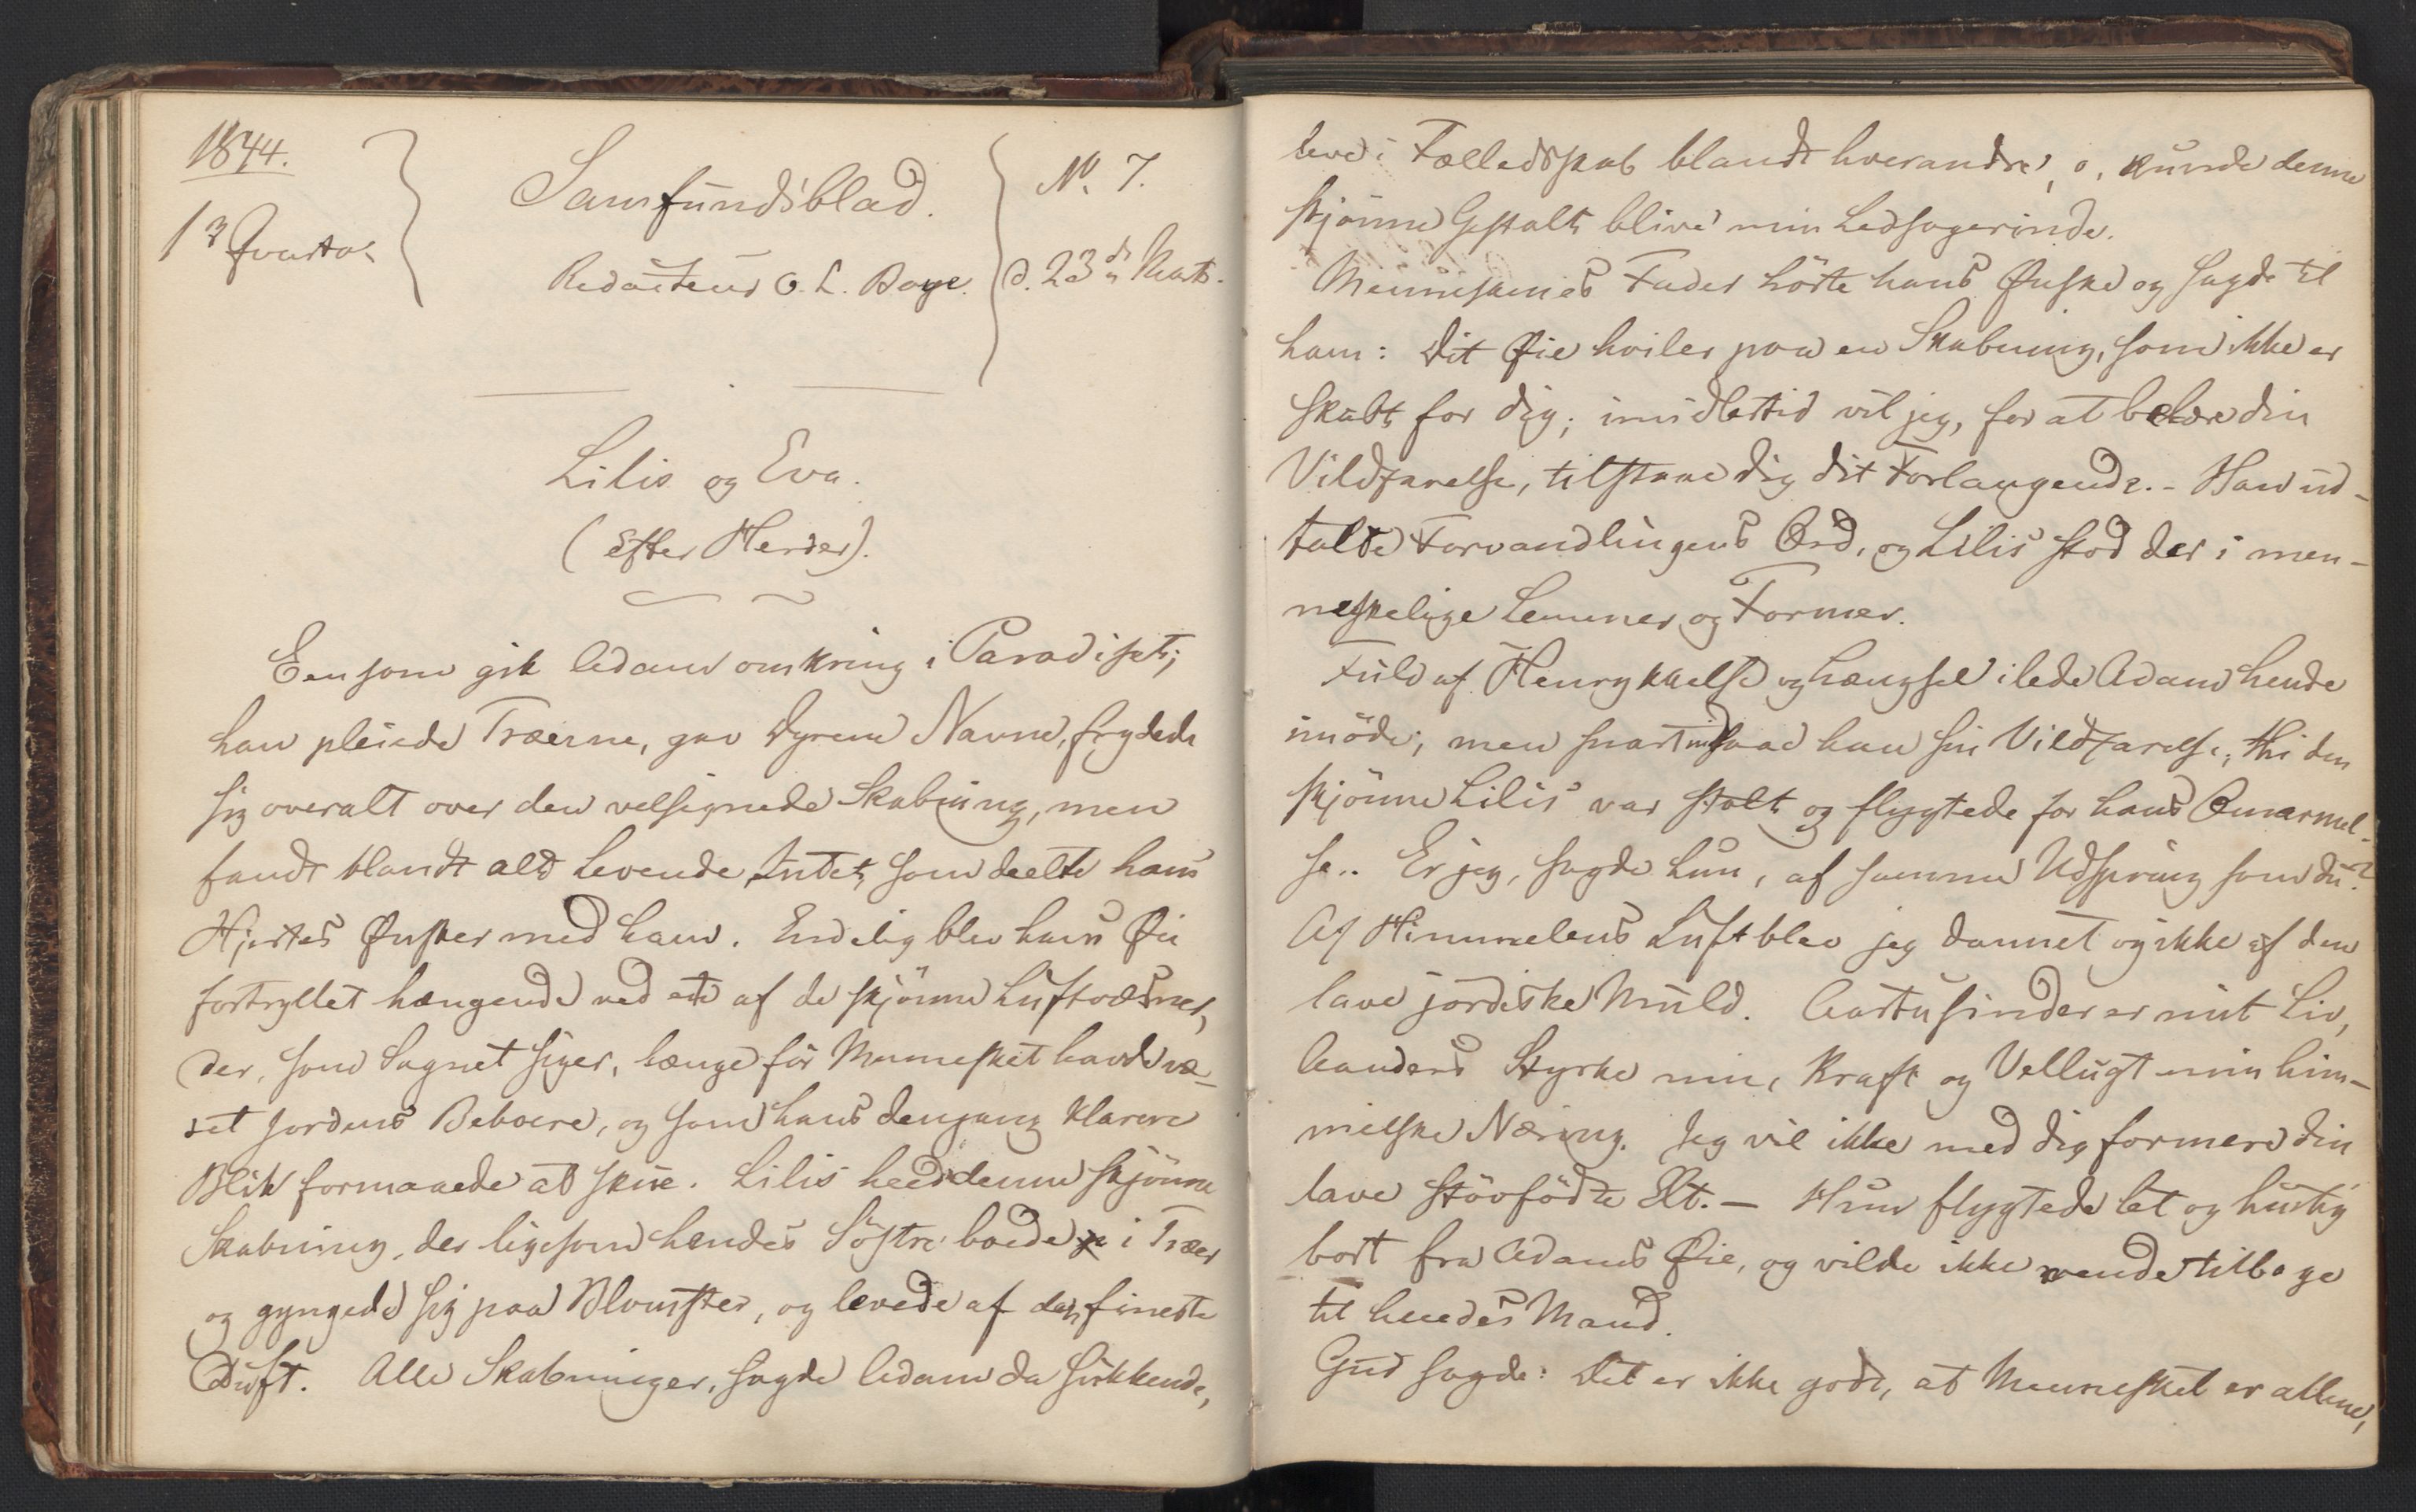 1844.
1ste Qvartal
Samfundsblad.
Redacteur O. L. Boye.
No. 7.
d. 23de Marts.
Lilis og Eva.
(Efter Herder).
Eensom gik Adam omkring i Paradiset;
han pleiede Træerne, gav Dyrene Navne, frydede
sig overalt over den velsignede Skabning, men
fandt blandt alt Levende Intet, som deelte hans
Hjertes Ønsker med ham. Endelig blev hans Øie
fortryllet hængende ved et af de skjönne Luftvæsner,
der, som Sagnet siger, længe för Mennesket havde væ-
ret Jordens Beboere, og som hans dengang klarere
Blik formaaede at skue. Lilis heed denne skjönne
Skabning, der ligesom hendes Söstre boede i Træer
og gyngede sig paa Blomster, og levede af den fineste
Duft. Alle Skabninger, sagde Adam da sukkende,
leve i Fælledsskab blandt hverandre, o, kunde denne
skjönne Gestalt blive min Ledsagerinde.
Menneskenes Fader hörte hans Ønske og sagde til
ham: Dit Øie hviler paa en Skabning, som ikke er
skabt for dig; imidlertid vil jeg, for at belære din
Vildfarelse, tilstaae dig dit Forlangende. - Han ud-
talte Forvandlingens Ord, og Lilis stod der i men-
neskelige Lemmer og Former.
Fuld af Henrykkelse og Længsel ilede Adam hende
imöde; men snart indsaae han sin Vildfarelse; thi den
skjönne Lilis var stolt og flygtede for hans Omarmel-
se.. Er jeg, sagde hun, af samme Udspring som du?
Af Himmelens Luft blev jeg dannet og ikke af den
lave jordiske Muld. Aartusinder er mit Liv,
Aanders Styrke min, Kraft og Vellugt min him-
melske Næring. Jeg vil ikke med dig formere din
lave stövfödte Æt. - Hun flygtede let og hurtig
bort fra Adams Øie, og vilde ikke vende tilbage
til hendes Mand.
Gud sagde: Det er ikke godt, at Mennesket er allene,